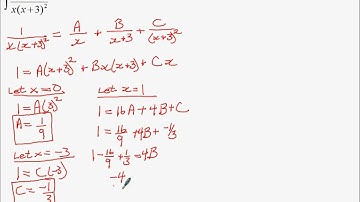 ∫ x(x+3)²
1/x(x+3)² = A/x + B/x+3 + C/(x+3)²
1 = A(x+3)² + Bx(x+3) + Cx
Let x=0
1 = A(3)²
A = 1/9
Let x=-3
1 = C(-3)
C = -1/3
Let x=1
1 = 16A + 4B + C
1 = 16/9 + 4B + -1/3
1 - 16/9 + 1/3 = 4B
-4